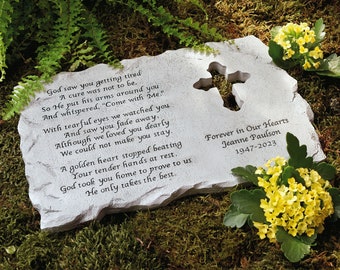 God saw you getting tired
A cure was not to be.
So He put his arms around you
And whispered, "Come with Me."
With tearful eyes we watched you
And saw you fade away.
Although we loved you dearly
We could not make you stay.
A golden heart stopped beating
Your tender hands at rest.
God took you home to prove to us
He only takes the best.
Forever in Our Hearts
Jeanne Paulson
1947-2023